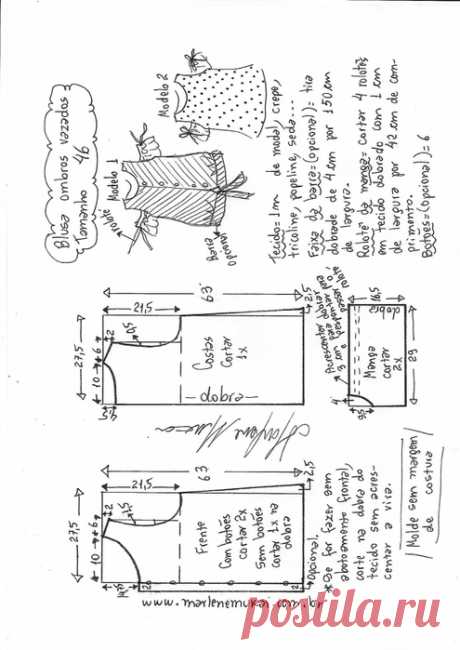 Blusa ombros vazados
Tamanho 46
Modelo 1
Modelo 2
rolotê
Barra
Opcional
Tecido= 1m de modal, crepe,
tricoline, popeline, seda...
Faixa da barra=(opcional)= tira
dobrada de 4 cm por 150 cm
de largura.
Rolotê da manga= cortar 4 rolotês
em tecido dobrado com 1 cm
de largura por 42 cm de com-
primento.
Botões=(opcional)= 6
27,5
10
6
2
4,5
21,5
0,5
63
2,5
Costas
cortar
1x
dobra
Acrescentar
3 cm para dobrar
passar o
rolotê
dobra
16,5
4
9,5
29
Manga
cortar
2x
27,5
10
6
2
21,5
1,5
63
2,5
Frente
Com botões
cortar 2x
Sem botões
cortar 1x na
dobra
Opcional
*Se for fazer sem
abotoamento frontal,
corte na dobra do
tecido sem acres-
centar a vira.
Molde sem margem
de costura
Marlene Mukai
www.marlenemukai.com.br
postila.ru